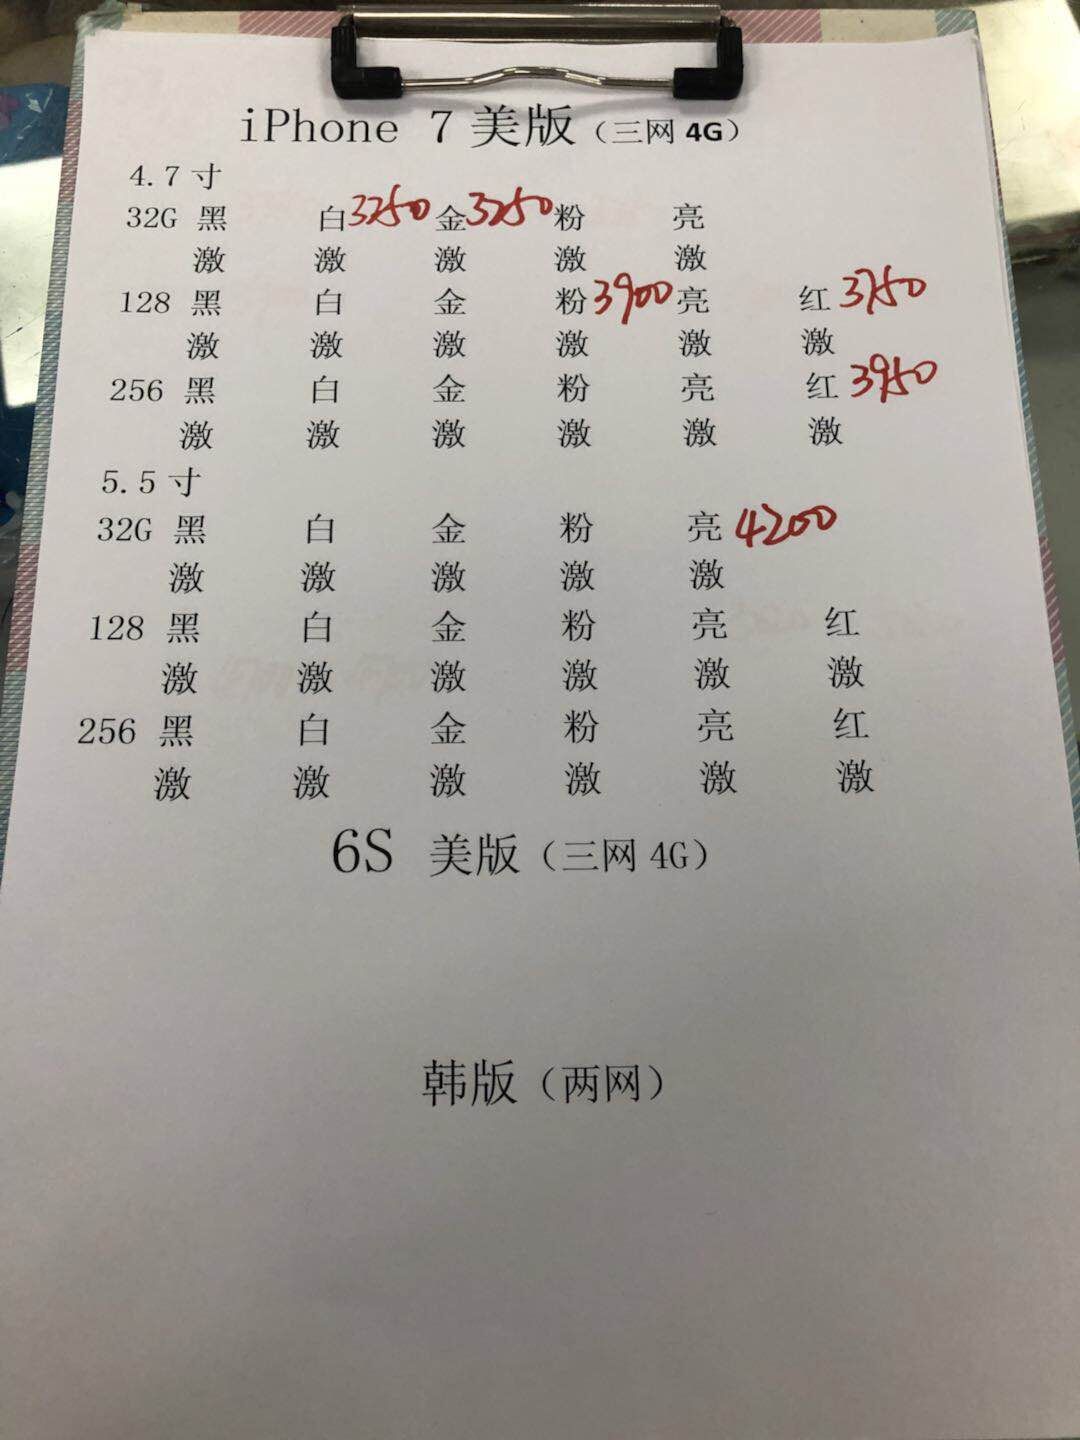 iPhone 7 美版（三网 4G）
4.7 寸
32G 黑 白 3250 金 3250 粉 亮
激 激 激 激 激
128 黑 白 金 粉 3900 亮 红 3750
激 激 激 激 激 激
256 黑 白 金 粉 亮 红 3950
激 激 激 激 激 激
5.5 寸
32G 黑 白 金 粉 亮 4200
激 激 激 激 激
128 黑 白 金 粉 亮 红
激 激 激 激 激 激
256 黑 白 金 粉 亮 红
激 激 激 激 激 激
6S 美版（三网 4G）
韩版（两网）